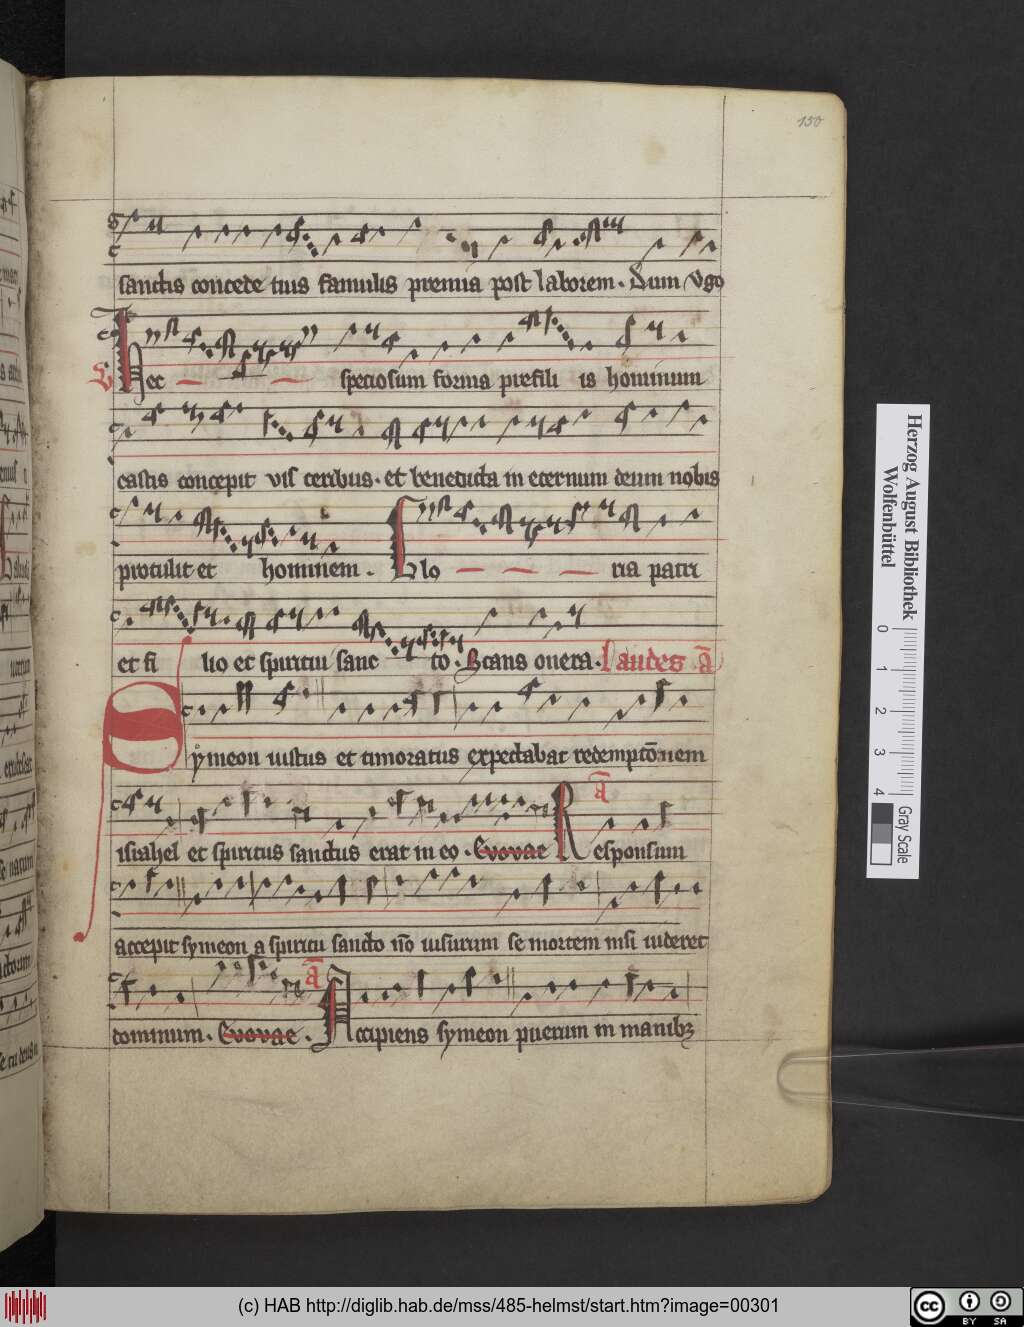 150
sanctis concede tuis famulis premia post laborem. Dum v̾go
V̾ Hec speciosum forma prefili is hominum
castis concepit vis ceribus. et benedicta in eternum deum nobis
protulit et hominem. Glo ria patri
et fi lio et spiritui sanc to. Stans onera. Laudes a̅
Symeon iustus et timoratus expectabat redempto̅nem
israhel et spiritus sanctus erat in eo. Evovae a̅ Responsum
accepit symeon a spiritu sancto no̅ uisurum se mortem nisi uideret
dominum. Evovae. a̅ Accipiens symeon puerum in manibꝫ
Herzog August Bibliothek
Wolfenbüttel
0 1 2 3 4
Gray Scale
(c) HAB http://diglib.hab.de/mss/485-helmst/start.htm?image=00301
cc BY SA